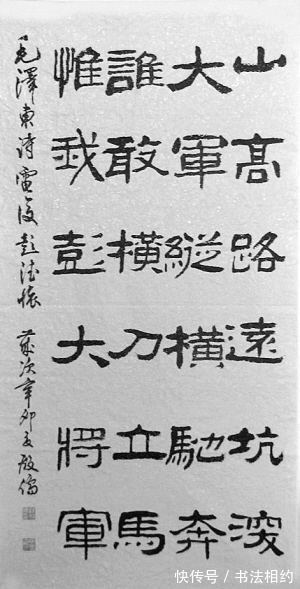 山高路遠坑深
大軍縱橫馳奔
誰敢橫刀立馬
惟我彭大將軍
毛澤東詩電復彭德懷 歲次辛卯夏
快传号/书法相约